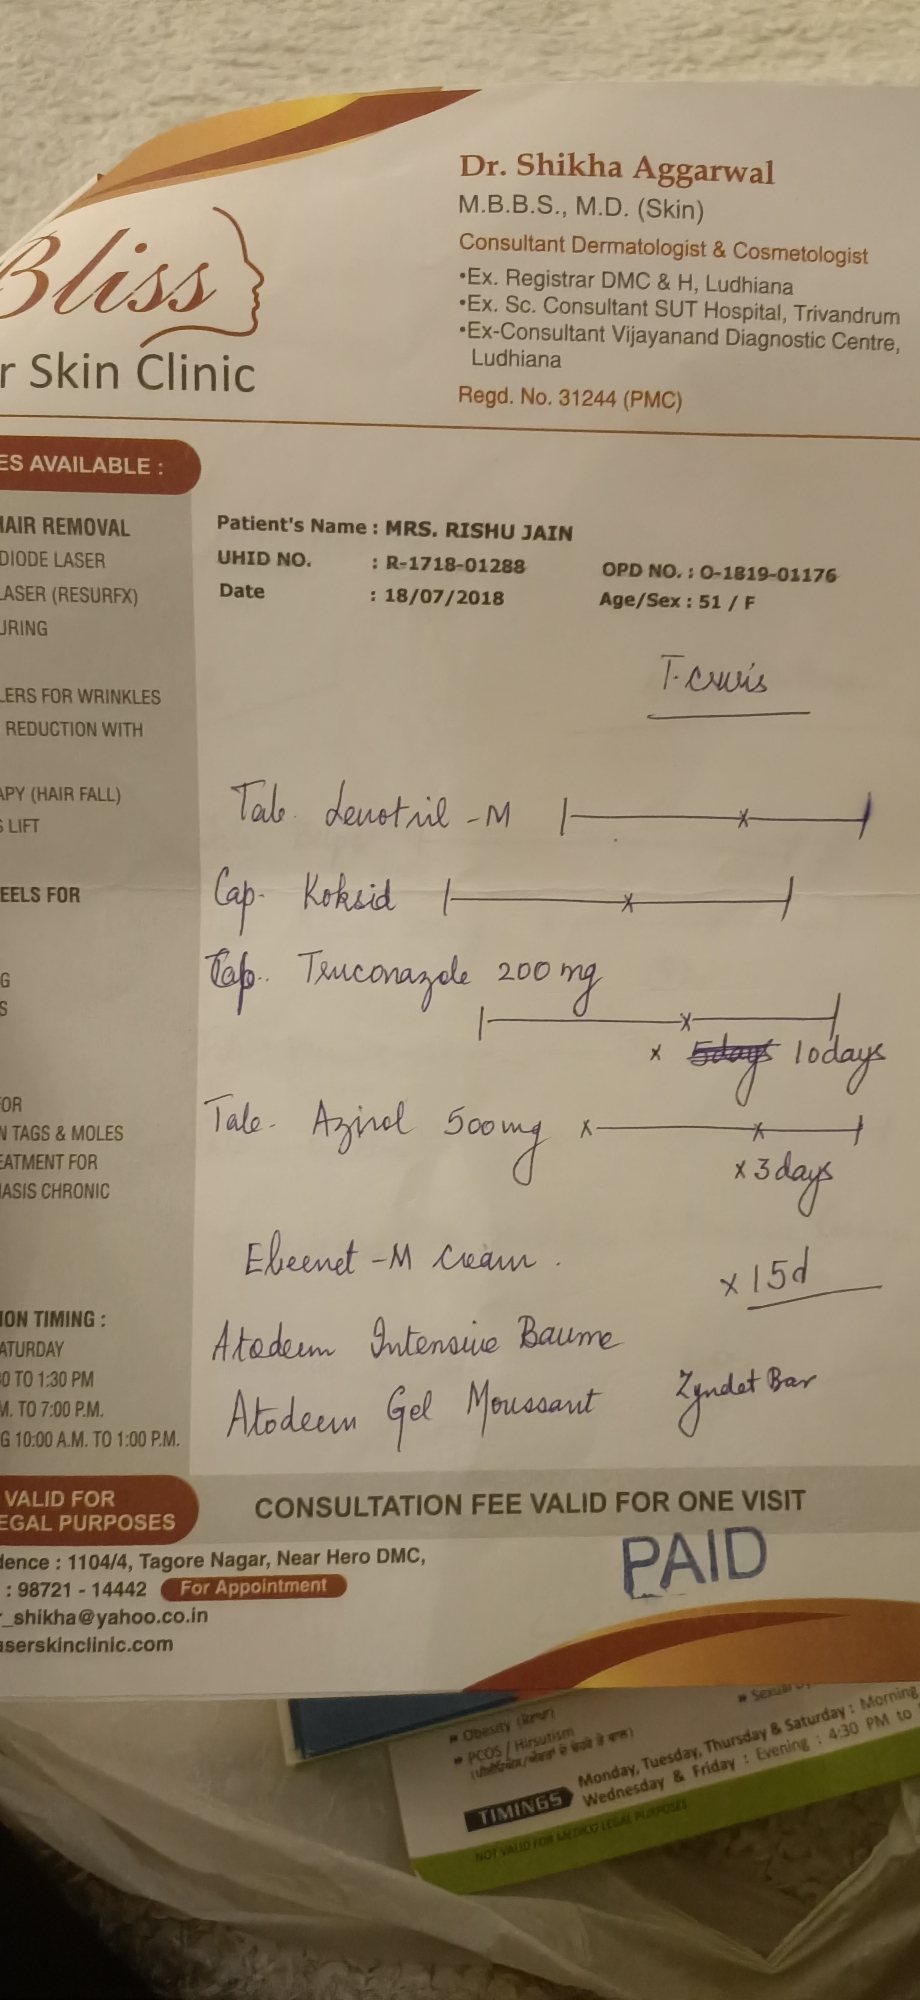 Bliss
r Skin Clinic
Dr. Shikha Aggarwal
M.B.B.S., M.D. (Skin)
Consultant Dermatologist & Cosmetologist
•Ex. Registrar DMC & H, Ludhiana
•Ex. Sc. Consultant SUT Hospital, Trivandrum
•Ex-Consultant Vijayanand Diagnostic Centre,
Ludhiana
Regd. No. 31244 (PMC)
ES AVAILABLE :
HAIR REMOVAL
DIODE LASER
LASER (RESURFX)
URING
LERS FOR WRINKLES
REDUCTION WITH
APY (HAIR FALL)
S LIFT
EELS FOR
G
S
OR
N TAGS & MOLES
EATMENT FOR
IASIS CHRONIC
ION TIMING :
ATURDAY
0 TO 1:30 PM
M. TO 7:00 P.M.
G 10:00 A.M. TO 1:00 P.M.
VALID FOR
EGAL PURPOSES
Patient's Name : MRS. RISHU JAIN
UHID NO. : R-1718-01288 OPD NO. : O-1819-01176
Date : 18/07/2018 Age/Sex : 51 / F
T. cruris
Tab. -M
Cap. Koksid
Cap. 200 mg
x 5days 10days
Tab. 500mg
x 3 days
-M cream.
x 15d
Atoderm Intensive Baume
Atoderm Gel Moussant Zyndet Bar
CONSULTATION FEE VALID FOR ONE VISIT
PAID
dence : 1104/4, Tagore Nagar, Near Hero DMC,
: 98721 - 14442 For Appointment
r_shikha@yahoo.co.in
aserskinclinic.com
» Obesity
» PCOS / Hirsutism
TIMINGS
Monday, Tuesday, Thursday & Saturday : Morning
Wednesday & Friday : Evening : 4:30 PM to
NOT VALID FOR MEDICO LEGAL PURPOSES